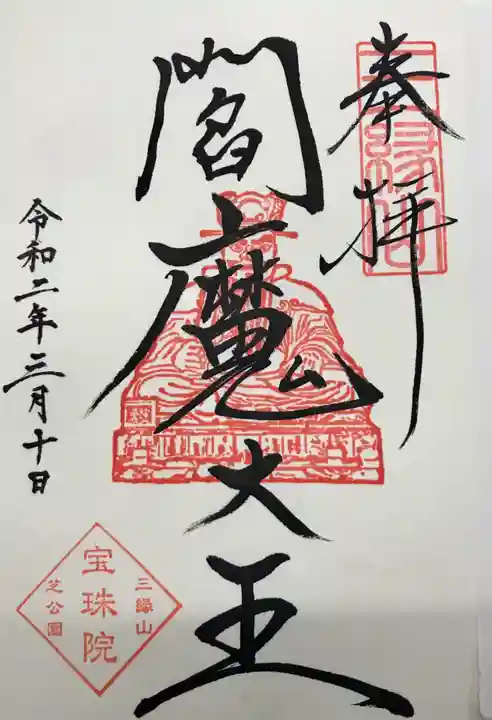 奉拝
三縁山
閻魔大王
令和二年三月十日
三縁山
宝珠院
芝公園